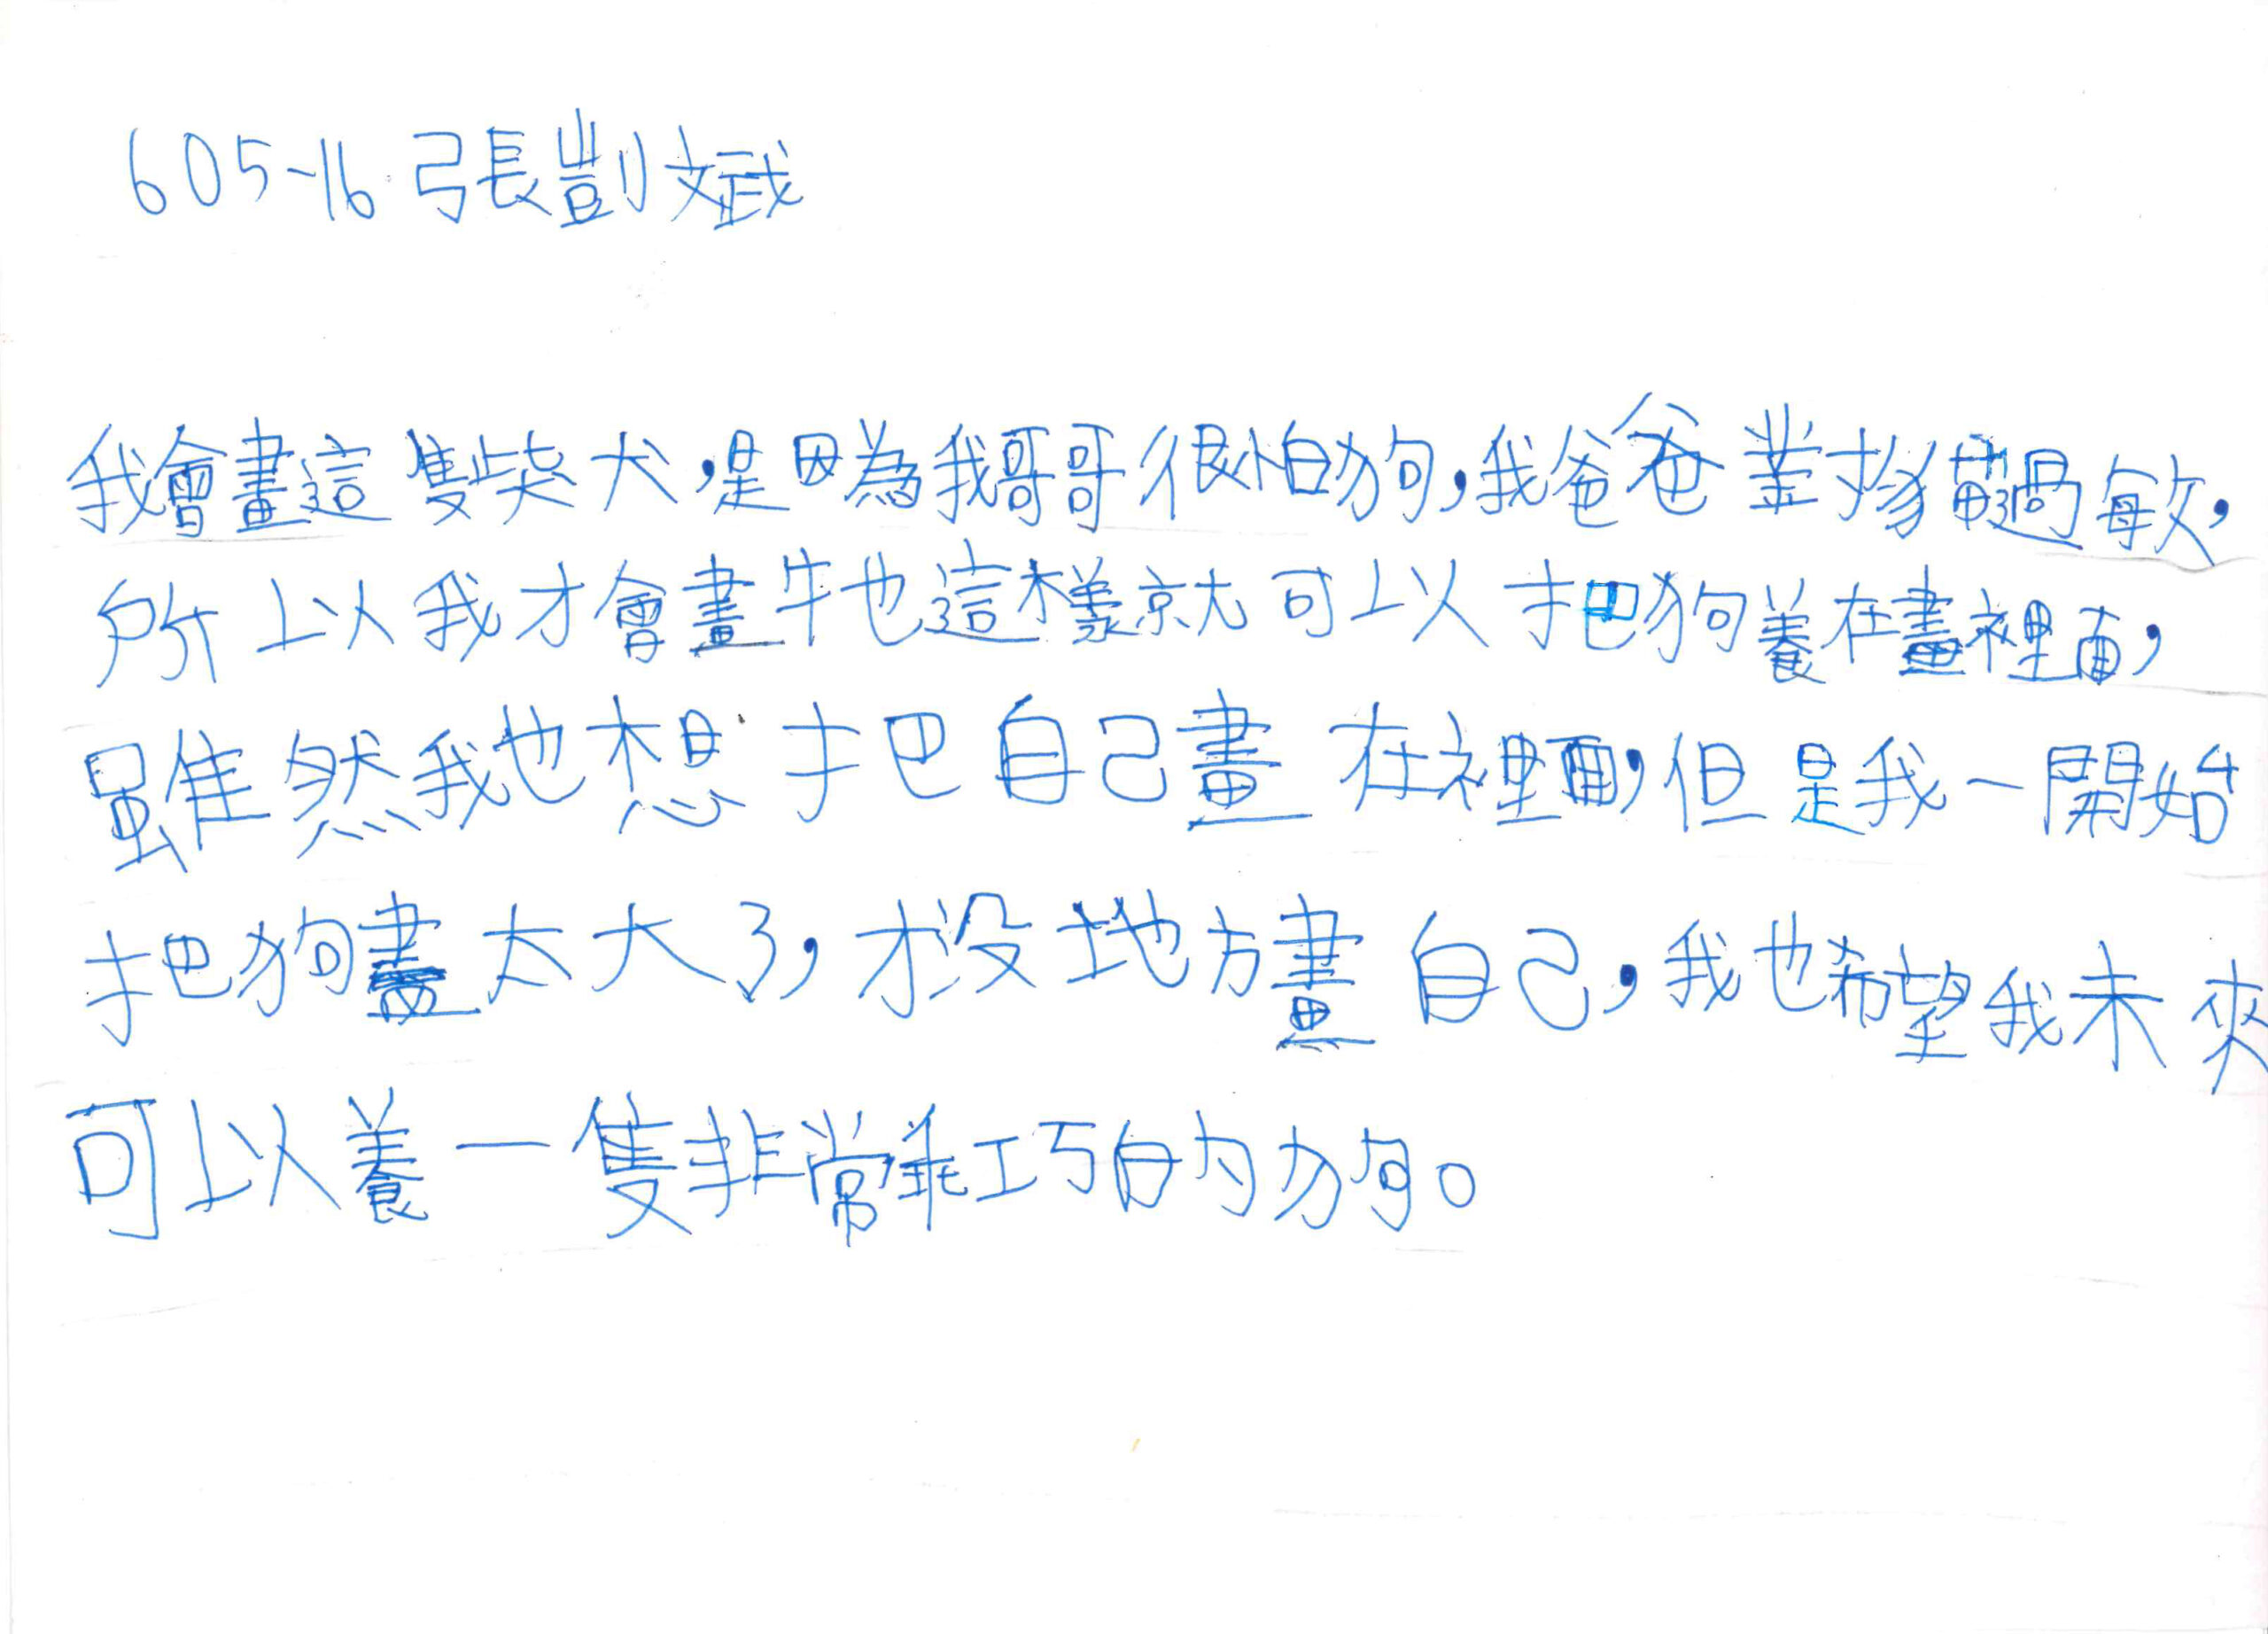 605-16 張凱斌
我會畫這隻柴犬,是因為我哥哥很怕狗,我爸爸對過敏,
所以我才會畫牠這樣就可以把狗養在畫裡面,
雖然我也想把自己畫在裡面,但是我一開始
把狗畫太大了,才沒地方畫自己,我也希望我未來
可以養一隻非常乖巧的狗。